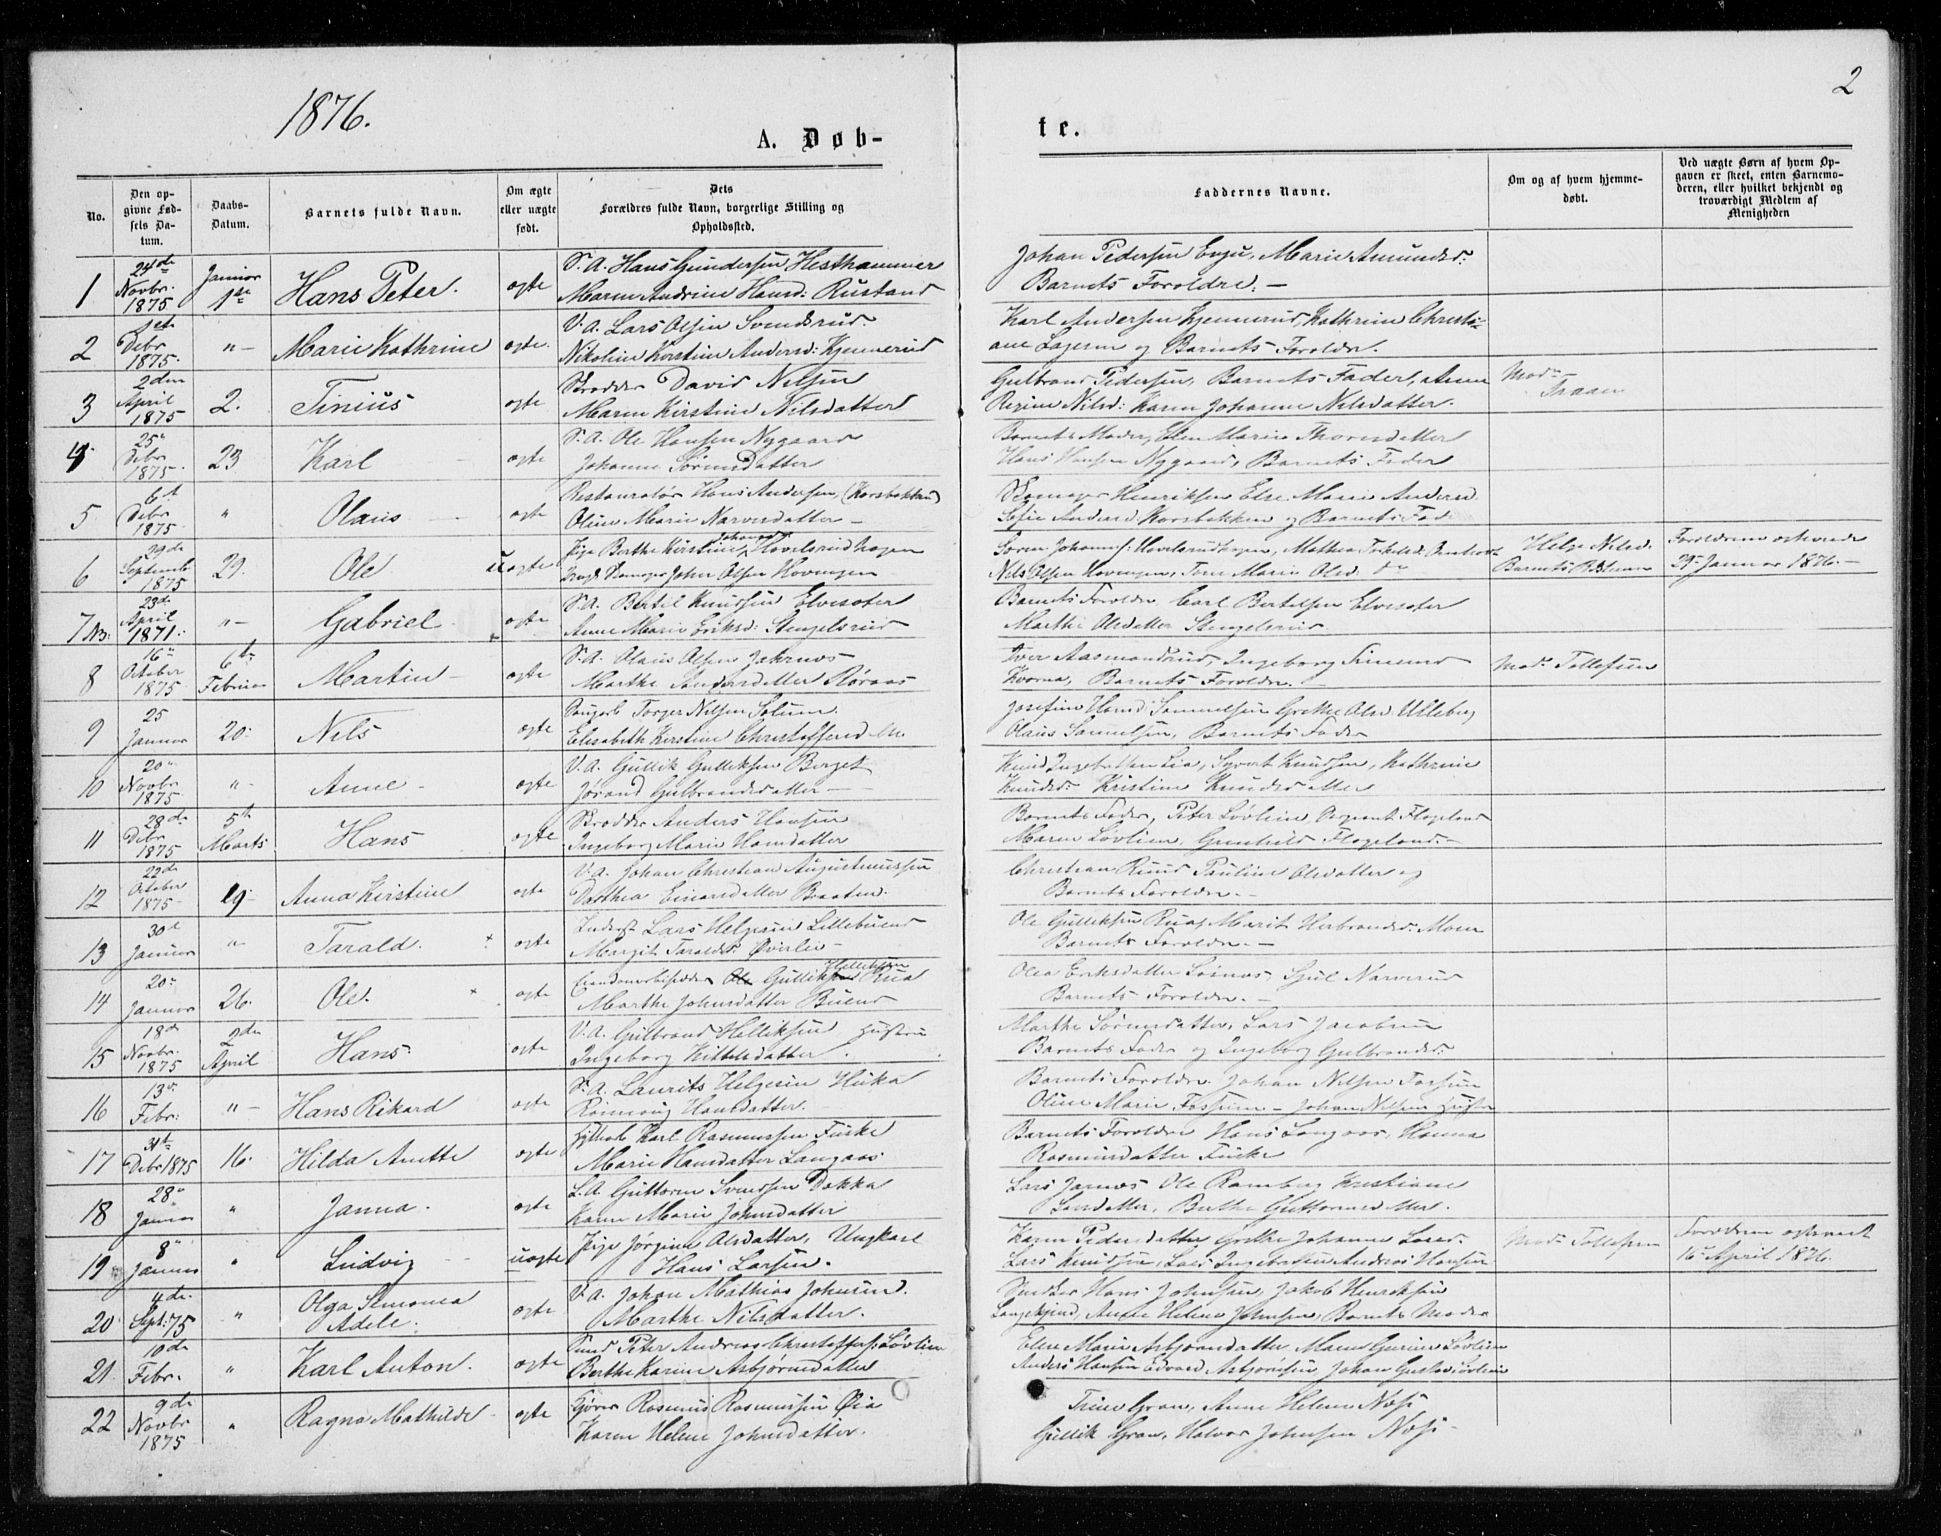 1876.
2
A. Døb-
te.
No.
Den op-
givne Fød-
sels Da-
tum.
Daabs-
Datum.
Barnets fulde Navn.
Om ægte
eller uægte
født.
Dets
Forældres fulde Navn, borgerlige Stilling og
Opholdssted.
Faddernes Navne.
Om og af hvem hjemme-
døbt.
Ved uægte Børn af hvem Op-
gaven er skeet, enten Barnemo-
deren, eller hvilket bekjendt og
troværdigt Medlem af
Menigheden
1
24de
Novbr.
1875
Januar
1ste
Hans Peter.
ægte
S. A. Hans Gundersen Hesthammer
Maren Andrine Hansd: Rustand
Johan Pedersen Enge, Marie Amundsd:
Barnets Forældre. –
2
1ste
Debr
1875.
"–
Marie Kathrine
ægte.
V. A. Lars Olsen Svendsrud.
Nikoline Kirstine Andersd: Kjennerud
Karl Andersen Kjennerud, Kathrine Christi-
ane Lagesen og Barnets Forældre.
3
2den
April
1875
2.
Tinius
ægte
Skrædder David Nilsen
Maren Kirstine Nilsdatter
Gulbrand Pedersen, Barnets Fader, Anne
Regine Nilsd: Karen Johanne Nilsdatter.
Mad:
Traaen
4
25"
Debr
1875.
23
Karl
ægte
S. A. Ole Hansen Nygaard
Johanne Sørensdatter
Barnets Moder, Elen Marie Thorsdatter
Hans Hansen Nygaard, Barnets Fader
5
6t
Debr
1875
"
Olaus
ægte
Restauratør Hans Andersen, (Korsbakken)
Oline Marie Narvesdatter –
Skomager Henriksen Else Marie Andersd
Sofie Andersd Korsbakken og Barnets Fad:
6
29de
Septemb
1875
29.
Ole
uægte
Pige Berthe Kirstine Johansd Hovelsrudhagen
Ungk Skomager Johan Olsen Hovengen
Søren Johanns: Hovelsrudhagen, Mathea
Nils Olsen Hovengen, Tone Marie Olsd. do
Helge Nilsd.
Barnets Bedstemor
Forældrene
29 Januar 1876. –
7 NB.
23de
April
1871.
"–
Gabriel
ægte
S. A. Bertil Knudsen Elvesæter
Anne Marie Eriksd: Stengelsrud
Barnets Forældre Carl Bertelsen Elvesæter
Marthe Olsdatter Stengelsrud
8
16"
October
1875
6te
Februar
Martin
ægte
S. A. Olaus Olsen Jahrnæs
Marthe Andersdatter Røraas
Iver Aasmundrud, Ingeborg Simensd
Kværna, Barnets Forældre. –
Mad: Tollefsen
9
25
Januar
20.
Nils
ægte
Torger Nilsen Solum.
Elisabeth Kirstine Christoffersd
Josefine Hansd: Samuelsen Grethe Olsd Ulleberg
Olaus Samuelsen, Barnets Fader
10
20"
Novbr.
1875
"–
Anne
ægte
V. A. Gullik Gulliksen Berget
Jørand Gulbrandsdatter –
Knud Ingebretsen Lia, Syvert Knudsen, Kathrine
Knudsd: Kristine Knudsdatter
11
28de
Debr
1875
5te
Marts
Hans
ægte
Skrædder Anders Hansen
Ingeborg Marie Hansdatter
Barnets Fader, Peter Løvlien, Flageland
Maren Løvlien, Gunhild Flageland. –
12
22de
October
1875
19.
Anna Kirstine
ægte
V. A. Johan Christian Augustinussen
Dorthea Einarsdatter Braaten.
Christian Ruud Pauline Olsdatter og
Barnets Forældre. –
13
30t
Januar
"
Tarald.
ægte
Inderst Lars Helgesen Lillebuend
Margit Taraldsd: Øverlie –
Ole Gulliksen Rua, Marit Herbrandsd: Moen
Barnets Forældre. –
14
20"
Januar
26.
Ole.
ægte
Gulliksen Rua
Marthe Johnsdatter Buend
Olea Eriksdatter Løsnæs, Narverud
Barnets Forældre. –
15
18de
Novbr.
1875
2den
April
Hans
ægte
V. A. Gulbrand Halliksen Hustru
Ingeborg Kittelsdatter.
Marthe Sørensdatter, Lars Jacobsen
Barnets Fader og Ingeborg Gulbrandsd:
16
13de
Febr.
"–
Hans Rikard
ægte
S. A. Laurits Helgesen Huka
Rønnaug Hansdatter. –
Barnets Forældre. Johan Nilsen Fossum
Oline Marie Fossum – Johan Nilsen Hustru
17
31te
Debr 1875
16.
Hilda Anette
ægte
Karl Rasmussen Fiske
Marie Hansdatter Langaas
Barnets Forældre Hans Langaas, Hanna
Rasmusdatter Fiske
18
28"
Januar
"
Janna.
ægte
S. A. Guttorm Svendsen Dokka
Karen Marie Johnsdatter
Lars Jarnæs Ole Ramberg Kristiane
Larsdatter, Berthe Guttormsdatter.
19
8"
Januar
"
Ludvig
uægte
Pige Jørgine Olsdatter, Ungkarl
Hans Larsen.
Karen Pedersdatter Grethe Johanne Larsd.
Lars Knudsen, Lars Ingebretsen Andreas Hansen
Mad: Tollefsen
Forældrene
16 April 1876.
20
4de
Sept: 75
"
Olga Simonea
Adele.
ægte
V. A. Johan Mathias Johnsen.
Marthe Nilsdatter.
Snedker Hans Johnsen, Jakob Henriksen
Langekjend, Anne Helene Johnsen, Barnets Moder
21
10de
Febr.
"
Karl Anton.
ægte
Peter Andreas Christoffers: Løvlien
Berthe Karine Asbjørnsdatter
Elen Marie Asbjørnsdatter Maren Gurine Løvlien
Anders Hansen Edvard Asbjørnsen Johan Gustav Løvlien
22
9de
Novbr
1875
"
Ragna Mathilde
ægte
Kjører Rasmus Rasmussen Øia
Karen Helene Johnsdatter.
Trine Gran, Anne Helene Næss
Gullik Gran, Halvor Johnsen Næss –